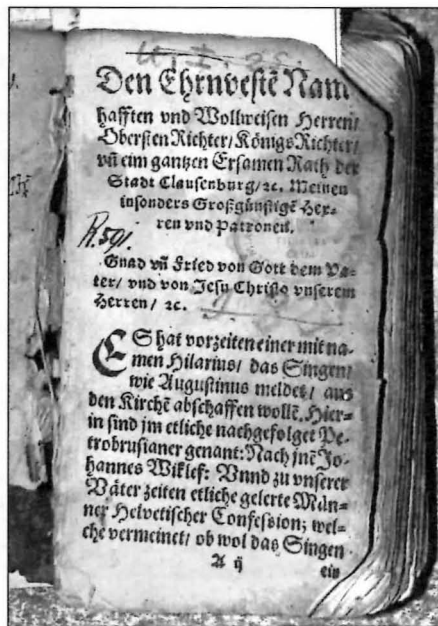 U. I. 25.
Den Ehrnvestē Nam
hafften vnd Wollweisen Herren/
Obersten Richter/ Königs Richter/
vñ eim gantzen Ersamen Rath der
Stadt Clausenburg/ ⁊c. Meinen
insonders Großgünstigē Her-
ren vnd Patronen.
R.591.
Gnad vñ Fried von Gott dem Va-
ter/ vnd von Jesu Christo vnserem
Herren/ ⁊c.
ES hat vorzeiten einer mit na-
men Hilarius/ das Singen/
wie Augustinus meldet/ aus
den Kirchē abschaffen wollē. Hier-
in sind jm etliche nachgefolget Pe-
trobrusianer genant: Nach jnē Jo-
hannes Wiklef: Vnnd zu vnserer
Väter zeiten etliche gelerte Män-
ner Helvetischer Confession; wel-
che vermeinet/ ob wol das Singen
A ij
ein